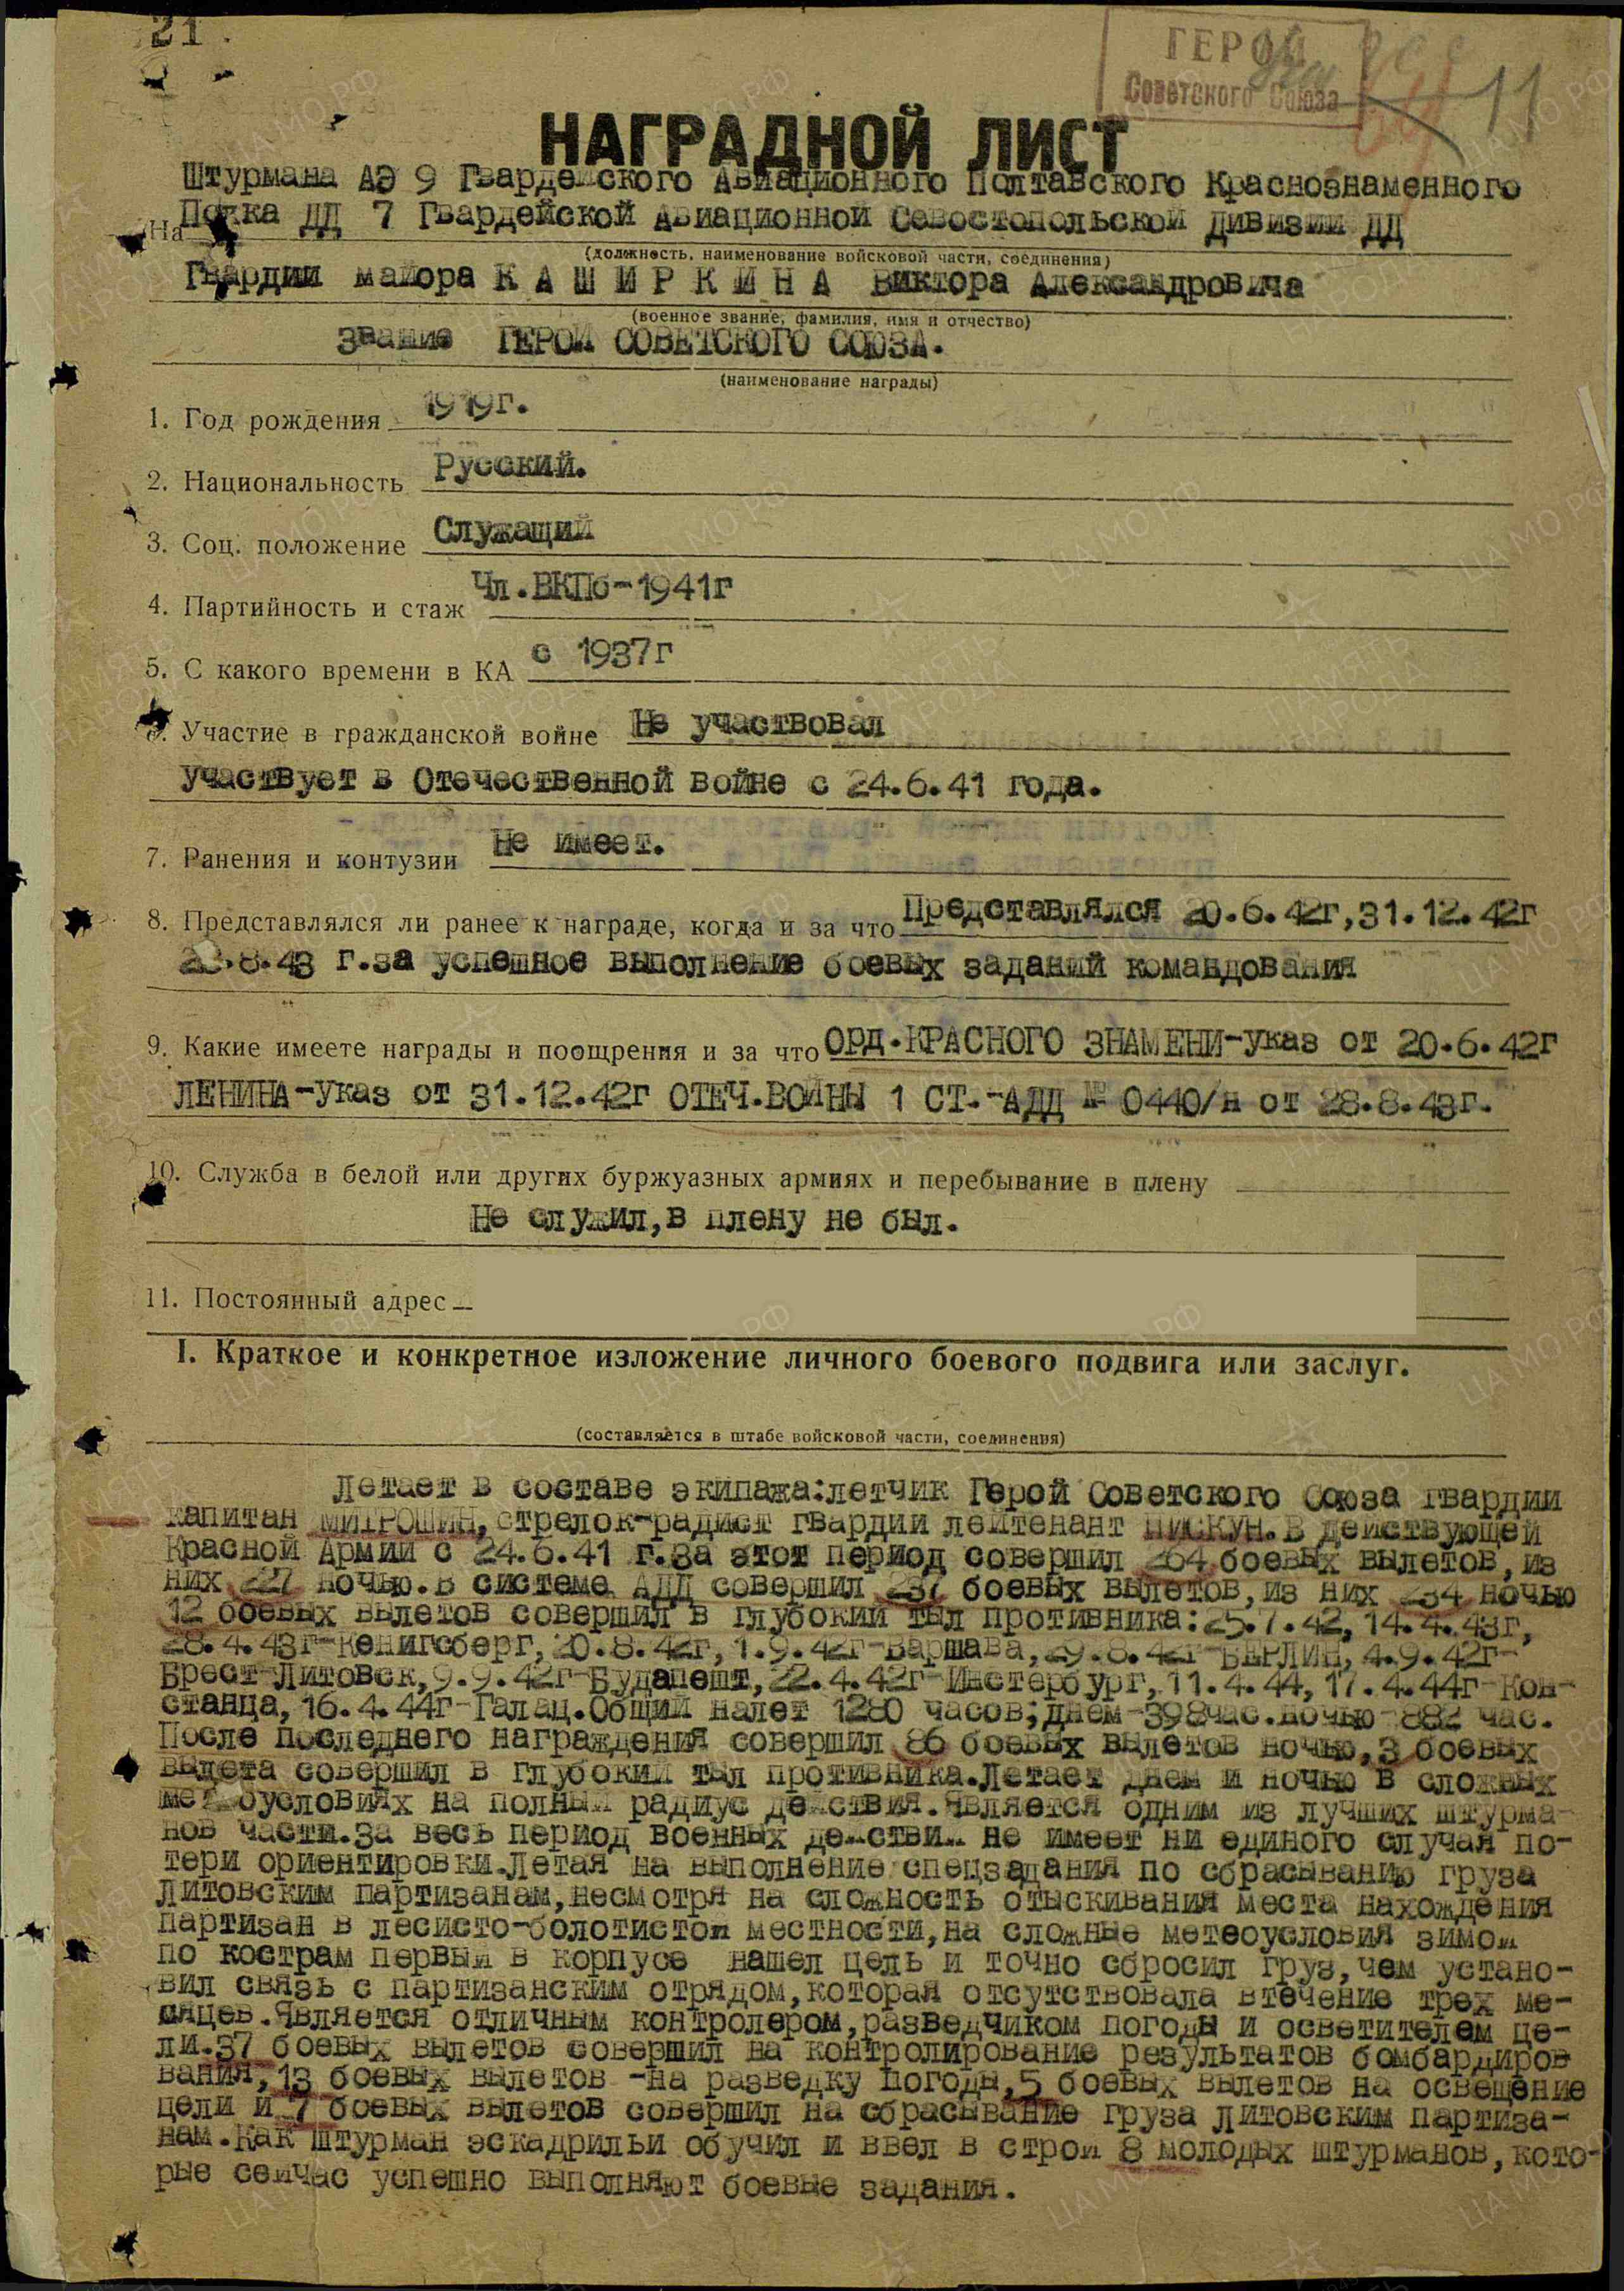 21.
ГЕРОЙ
Советского Союза
11
НАГРАДНОЙ ЛИСТ
Штурмана АЭ 9 Гвардейского Авиационного Полтавского Краснознаменного
На Полка ДД 7 Гвардейской Авиационной Севостопольской Дивизии ДД
(должность, наименование войсковой части, соединения)
Гвардии майора К А Ш И Р К И Н А Виктора Александровича
(военное звание, фамилия, имя и отчество)
звание ГЕРОЙ СОВЕТСКОГО СОЮЗА.
(наименование награды)
1. Год рождения 1919г.
2. Национальность Русский.
3. Соц. положение Служащий
4. Партийность и стаж Чл.ВКПб-1941г
5. С какого времени в КА с 1937г
6. Участие в гражданской войне Не участвовал
участвует в Отечественной войне с 24.6.41 года.
7. Ранения и контузии Не имеет.
8. Представлялся ли ранее к награде, когда и за что Представлялся 20.6.42г,31.12.42г
28.8.43 г.за успешное выполнение боевых заданий командования
9. Какие имеете награды и поощрения и за что ОРД.КРАСНОГО ЗНАМЕНИ-указ от 20.6.42г
ЛЕНИНА-Указ от 31.12.42г ОТЕЧ.ВОЙНЫ 1 СТ.-АДД № 0440/н от 28.8.43г.
10. Служба в белой или других буржуазных армиях и перебывание в плену
Не служил,в плену не был.
11. Постоянный адрес
I. Краткое и конкретное изложение личного боевого подвига или заслуг.
(составляется в штабе войсковой части, соединения)
Летает в составе экипажа:летчик Герой Советского Союза гвардии
капитан МИТРОШИН,стрелок-радист гвардии лейтенант ПИСКУН.В действующей
Красной Армии с 24.6.41 г.За этот период совершил 264 боевых вылетов,из
них 227 ночью.В системе АДД совершил 237 боевых вылетов,из них 234 ночью
12 боевых вылетов совершил в глубокий тыл противника:25.7.42,14.4.43г,
28.4.43г-Кенигсберг,20.8.42г,1.9.42г-Варшава,29.8.42г-БЕРЛИН,4.9.42г-
Брест-Литовск,9.9.42г-Будапешт,22.4.42г-Инстербург,11.4.44,17.4.44г-Кон-
станца,16.4.44г-Галац.Общий налет 1280 часов;днем-398час.ночью-882 час.
После последнего награждения совершил 86 боевых вылетов ночью,3 боевых
вылета совершил в глубокий тыл противника.Летает днем и ночью в сложных
метеоусловиях на полный радиус действия.Является одним из лучших штурма-
нов части.За весь период военных действий не имеет ни единого случая по-
тери ориентировки.Летая на выполнение спецзадания по сбрасыванию груза
Литовским партизанам,несмотря на сложность отыскивания места нахождения
партизан в лесисто-болотистой местности,на сложные метеоусловия зимой
по кострам первый в корпусе нашел цель и точно сбросил груз,чем устано-
вил связь с партизанским отрядом,которая отсутствовала втечение трех ме-
сяцев.Является отличным контролером,разведчиком погоды и осветителем це-
ли.37 боевых вылетов совершил на контролирование результатов бомбардиров
вания,13 боевых вылетов -на разведку погоды,5 боевых вылетов на освещение
цели и 7 боевых вылетов совершил на сбрасывание груза Литовским партиза-
нам.Как штурман эскадрильи обучил и ввел в строй 8 молодых штурманов,кото-
рые сейчас успешно выполняют боевые задания.